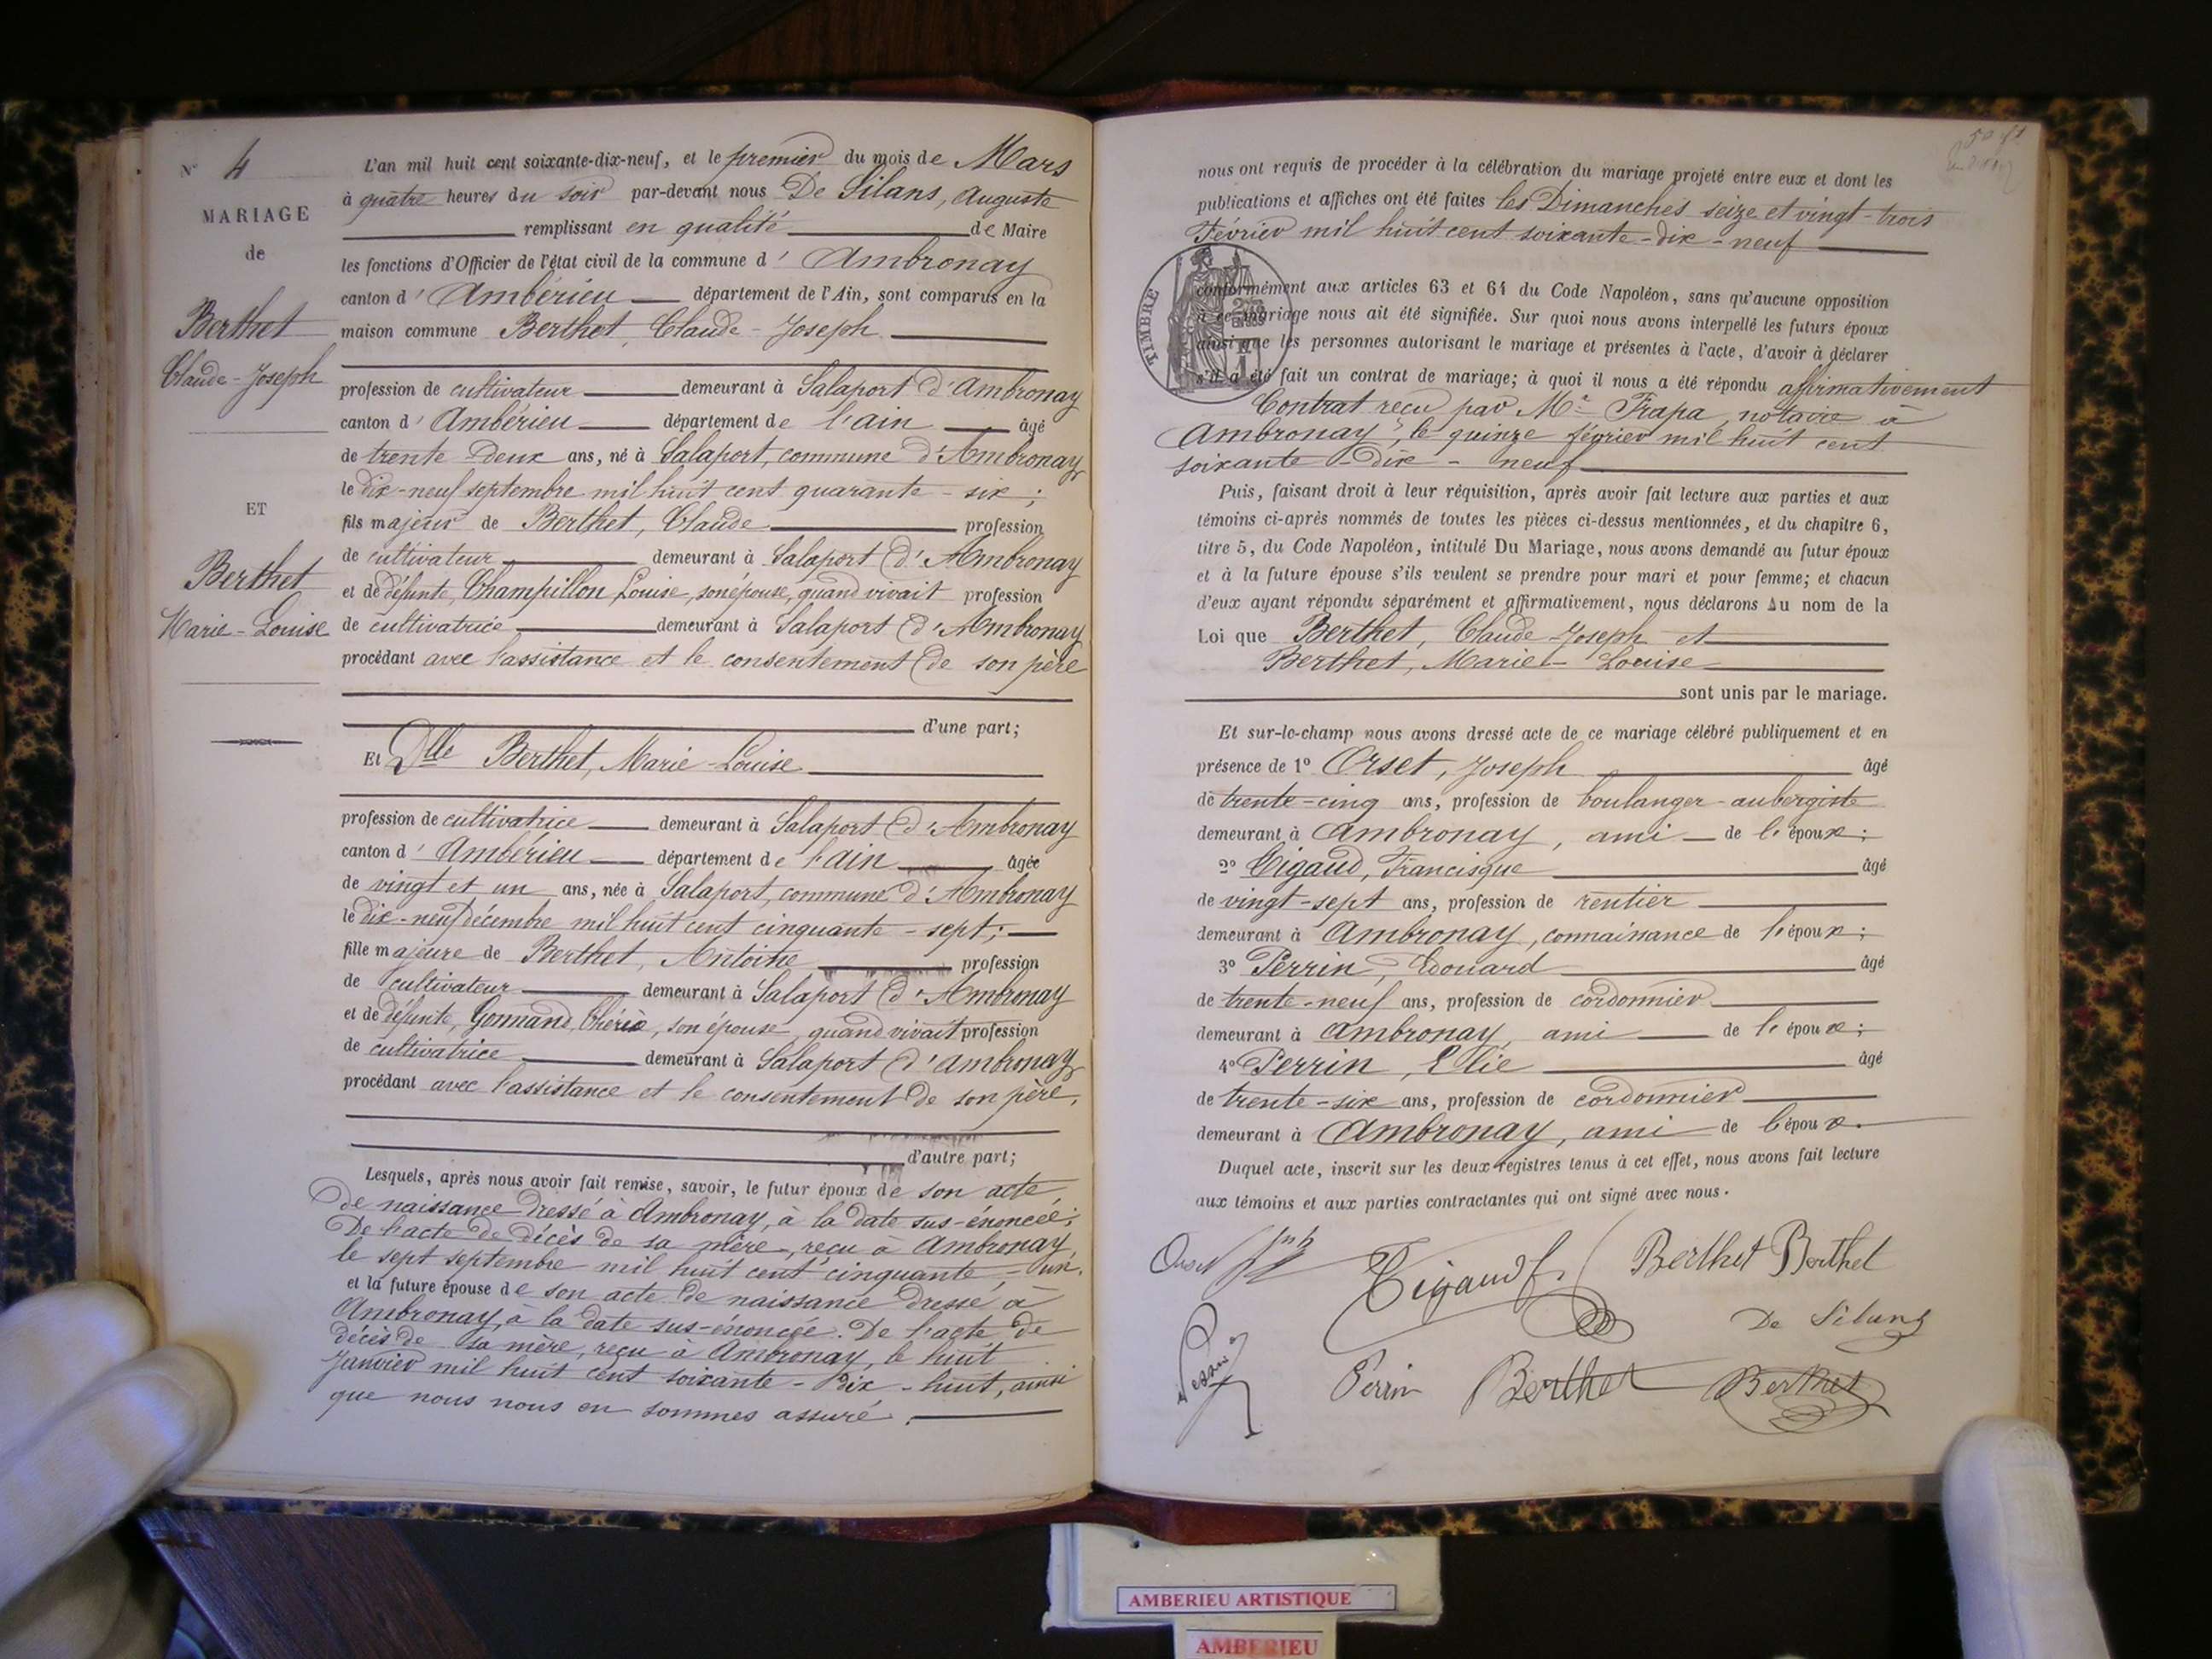 N° 4
MARIAGE
de
Berthet
Claude-Joseph
ET
Berthet
Marie-Louise
L'an mil huit cent soixante-dix-neuf, et le premier du mois de Mars
à quatre heures du soir par-devant nous De Silans, Auguste
remplissant en qualité de Maire
les fonctions d'Officier de l'état civil de la commune d'Ambronay
canton d'Ambérieu département de l'Ain, sont comparus en la
maison commune Berthet, Claude-Joseph
profession de cultivateur demeurant à Salaport d'Ambronay
canton d'Ambérieu département de l'ain âgé
de trente-deux ans, né à Salaport, commune d'Ambronay
le dix-neuf septembre mil huit cent quarante-six;
fils majeur de Berthet, Claude profession
de cultivateur demeurant à Salaport d'Ambronay
et de défunte, Champillon, Louise, son épouse, quand vivait profession
de cultivatrice demeurant à Salaport d'Ambronay
procédant avec l'assistance et le consentement de son père
d'une part;
Et Dlle Berthet, Marie-Louise
profession de cultivatrice demeurant à Salaport d'Ambronay
canton d'Ambérieu département de l'ain âgée
de vingt et un ans, née à Salaport, commune d'Ambronay
le dix-neuf décembre mil huit cent cinquante-sept;
fille majeure de Berthet, Antoine profession
de cultivateur demeurant à Salaport d'Ambronay
et de défunte, Gonnand, son épouse, quand vivait profession
de cultivatrice demeurant à Salaport d'Ambronay
procédant avec l'assistance et le consentement de son père,
d'autre part;
Lesquels, après nous avoir fait remise, savoir, le futur époux de son acte
de naissance dressé à Ambronay, à la date sus-énoncée;
De l'acte de décès de sa mère, reçu à Ambronay,
le sept septembre mil huit cent cinquante-un.
et la future épouse de son acte de naissance dressé à
Ambronay, à la date sus-énoncée. De l'acte de
décès de sa mère, reçu à Ambronay, le huit
Janvier mil huit cent soixante-dix-huit, ainsi
que nous nous en sommes assuré.
nous ont requis de procéder à la célébration du mariage projeté entre eux et dont les
publications et affiches ont été faites les Dimanches seize et vingt-trois
Février mil huit cent soixante-dix-neuf
TIMBRE
conformément aux articles 63 et 64 du Code Napoléon, sans qu'aucune opposition
à ce mariage nous ait été signifiée. Sur quoi nous avons interpellé les futurs époux
ainsi que les personnes autorisant le mariage et présentes à l'acte, d'avoir à déclarer
s'il a été fait un contrat de mariage; à quoi il nous a été répondu affirmativement
Contrat reçu par Me Frapa, notaire à
Ambronay, le quinze février mil huit cent
soixante-dix-neuf
Puis, faisant droit à leur réquisition, après avoir fait lecture aux parties et aux
témoins ci-après nommés de toutes les pièces ci-dessus mentionnées, et du chapitre 6,
titre 5, du Code Napoléon, intitulé Du Mariage, nous avons demandé au futur époux
et à la future épouse s'ils veulent se prendre pour mari et pour femme; et chacun
d'eux ayant répondu séparément et affirmativement, nous déclarons Au nom de la
Loi que Berthet, Claude-Joseph et
Berthet, Marie-Louise
sont unis par le mariage.
Et sur-le-champ nous avons dressé acte de ce mariage célébré publiquement et en
présence de 1° Orset, Joseph âgé
de trente-cinq ans, profession de boulanger-aubergiste
demeurant à Ambronay, ami de l'époux;
2° Tigaud, Francisque âgé
de vingt-sept ans, profession de rentier
demeurant à Ambronay, connaissance de l'époux;
3° Perrin, Edouard âgé
de trente-neuf ans, profession de cordonnier
demeurant à Ambronay, ami de l'époux;
4° Perrin, Elie âgé
de trente-six ans, profession de cordonnier
demeurant à Ambronay, ami de l'époux.
Duquel acte, inscrit sur les deux registres tenus à cet effet, nous avons fait lecture
aux témoins et aux parties contractantes qui ont signé avec nous.
Orset Tigaud f. Berthet Berthet
De Silans
Perrin Berthet Berthet
AMBERIEU ARTISTIQUE
AMBERIEU